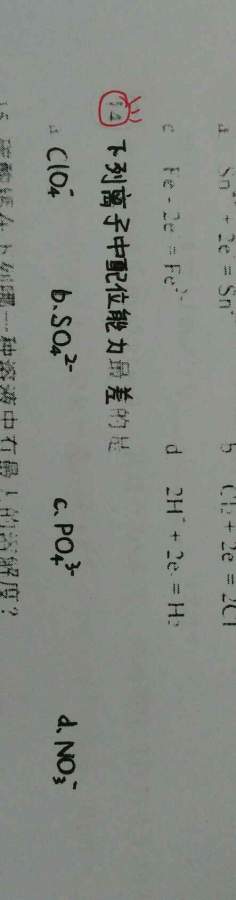 a Sn²⁺ + 2e = Sn b Cl₂ + 2e = 2Cl
c Fe - 2e = Fe²⁺ d 2H⁺ + 2e = H₂
14 下列离子中配位能力最差的是
a ClO₄⁻ b.SO₄²⁻ c.PO₄³⁻ d.NO₃⁻
15 在下列哪一种溶液中有最大的溶解度？